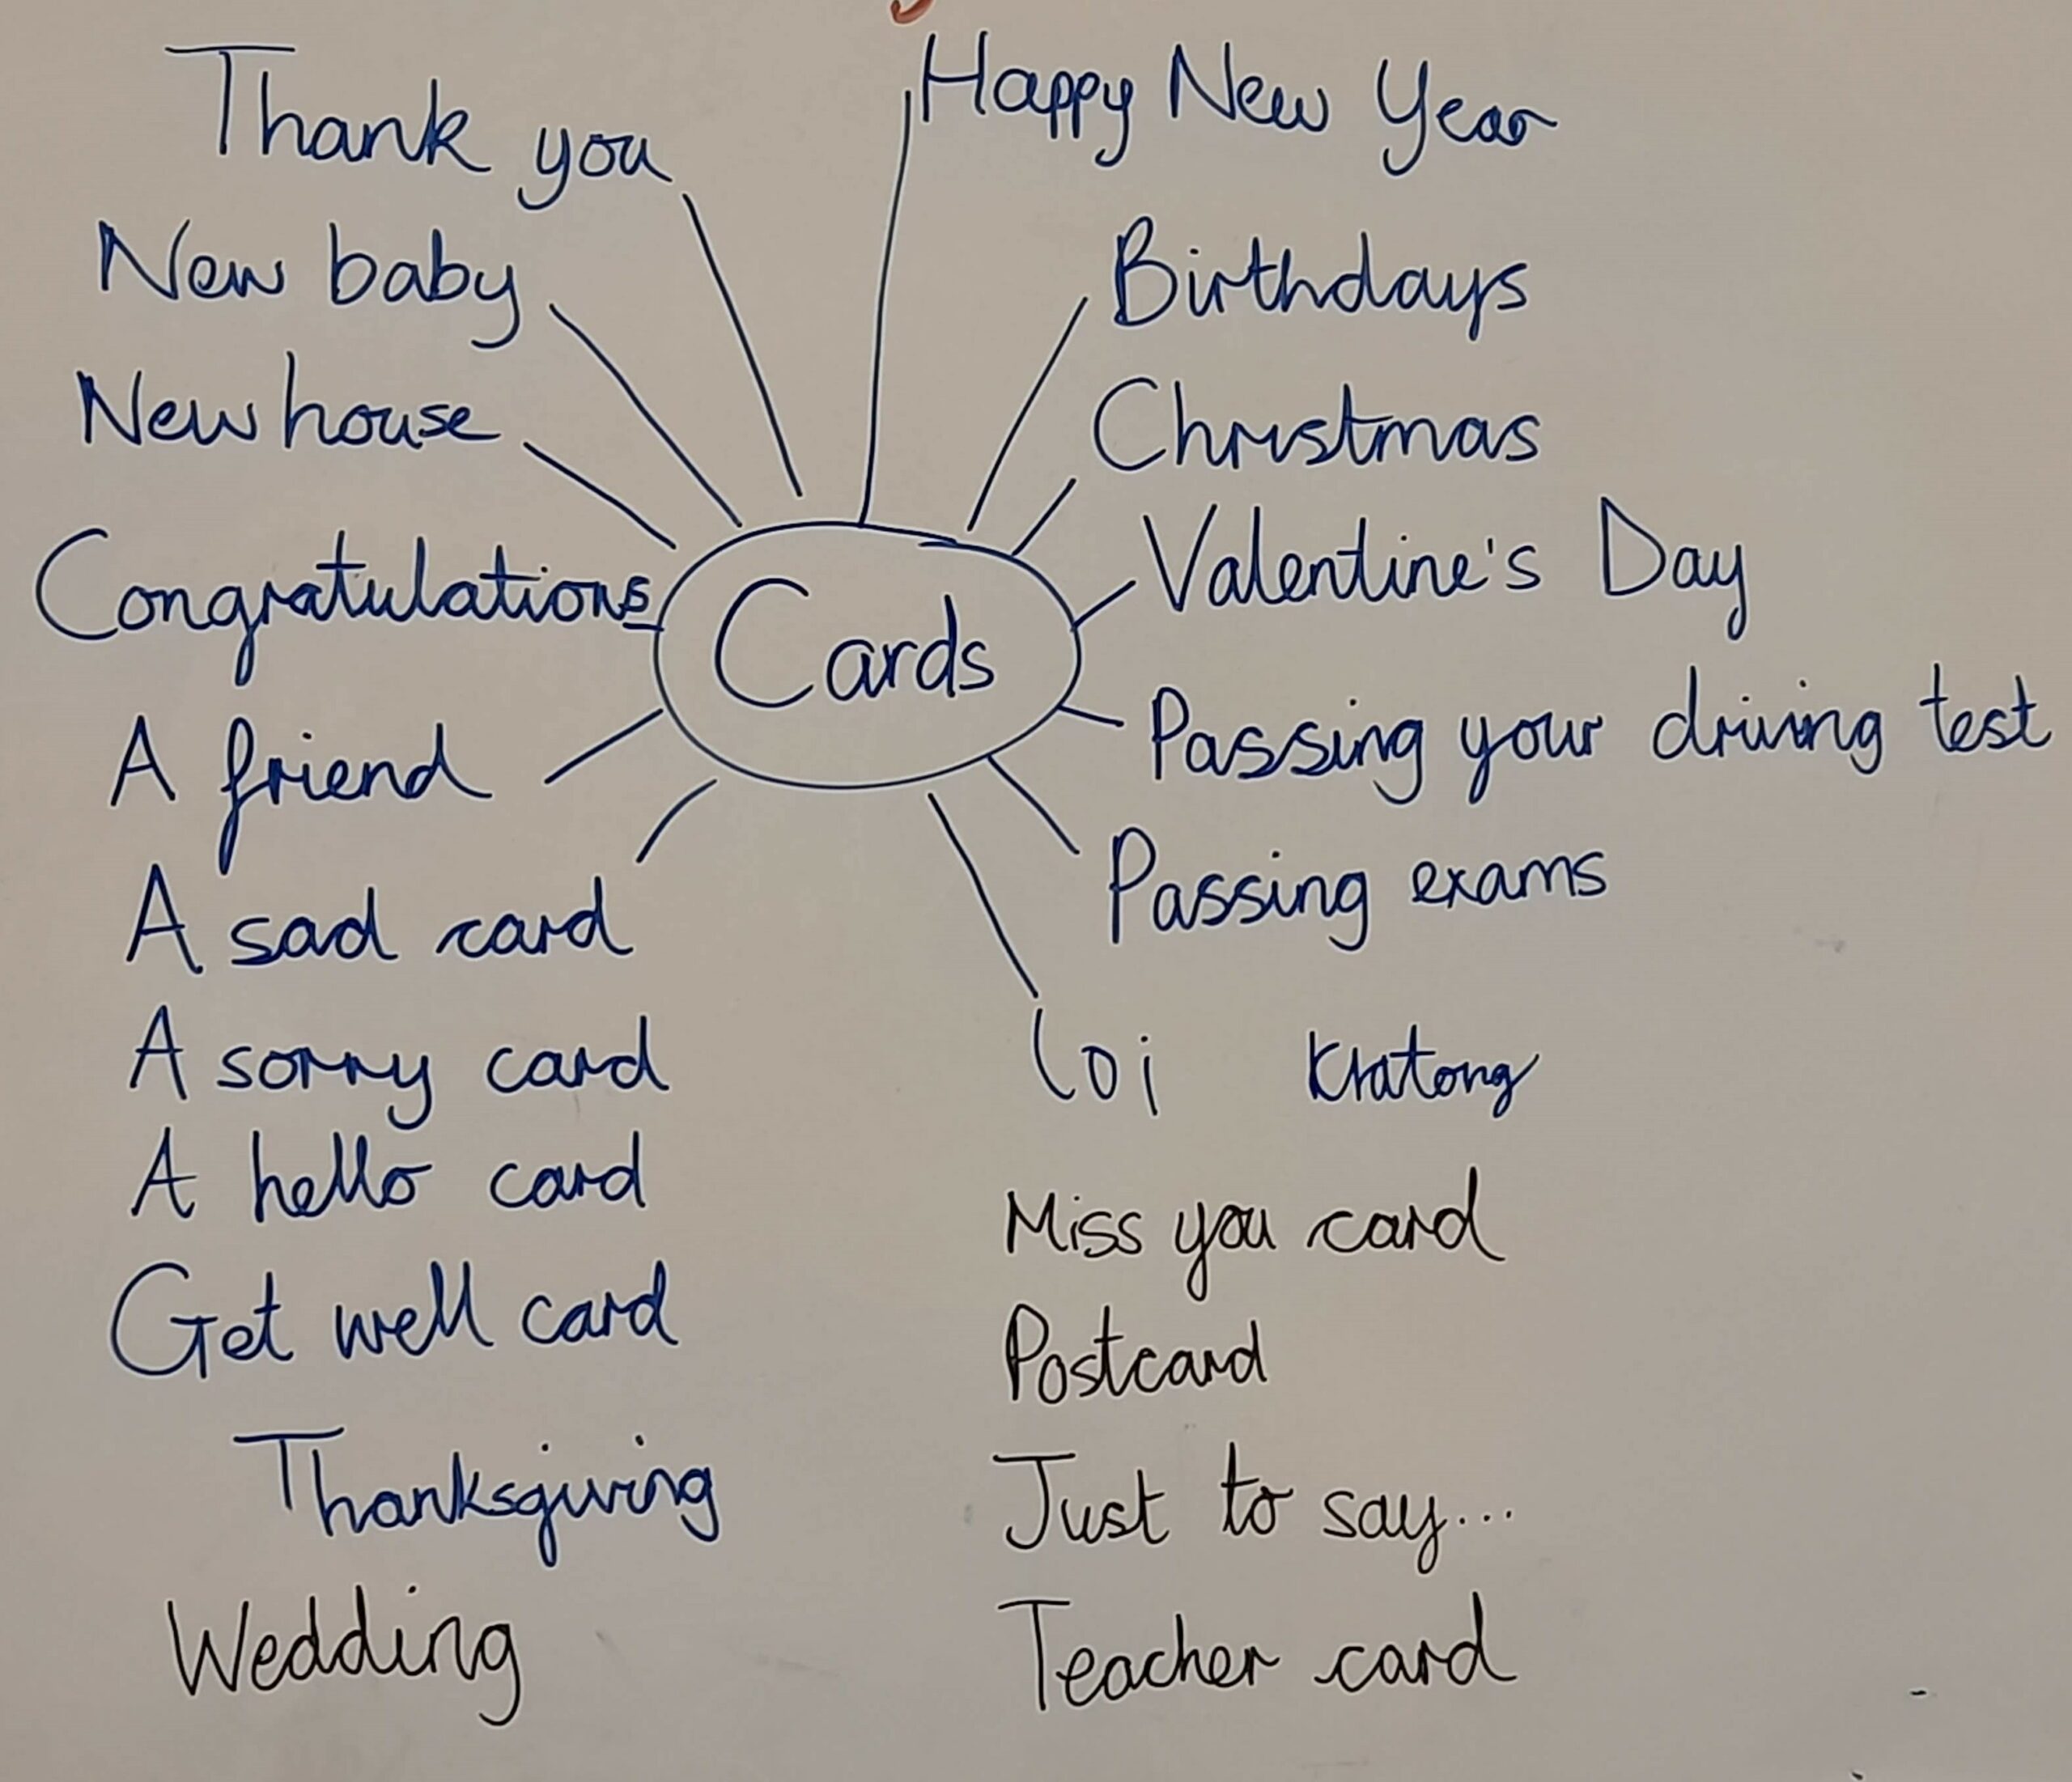 Thank you
New baby
New house
Congratulations
A friend
A sad card
A sorry card
A hello card
Get well card
Thanksgiving
Wedding
Cards
Happy New Year
Birthdays
Christmas
Valentine's Day
Passing your driving test
Passing exams
Loi Kratong
Miss you card
Postcard
Just to say...
Teacher card